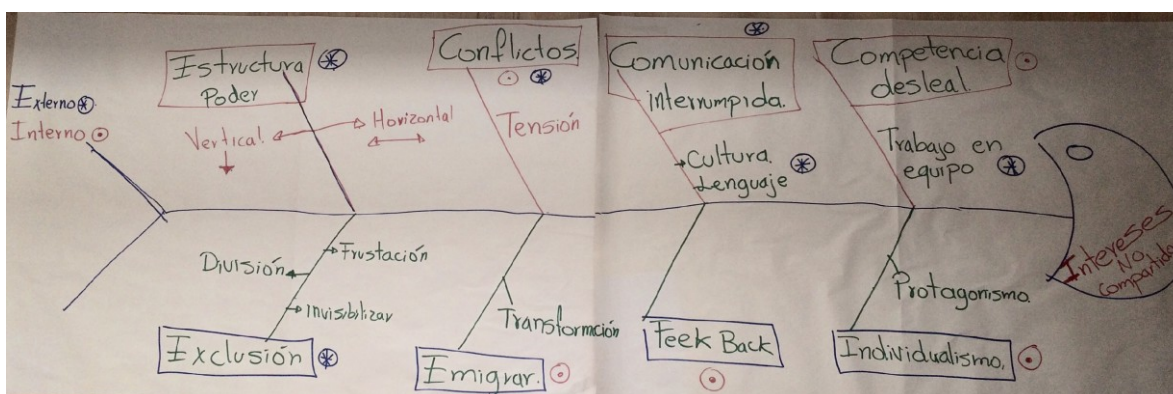 Externo
Interno
Estructura
Poder
Vertical
Horizontal
Conflictos
Tensión
Comunicación
interrumpida.
Cultura
Lenguaje
Competencia
desleal.
Trabajo en
equipo
Intereses
No
compartido
Frustación
División
Invisibilizar
Exclusión
Transformación
Emigrar.
Feek Back
Protagonismo
Individualismo.